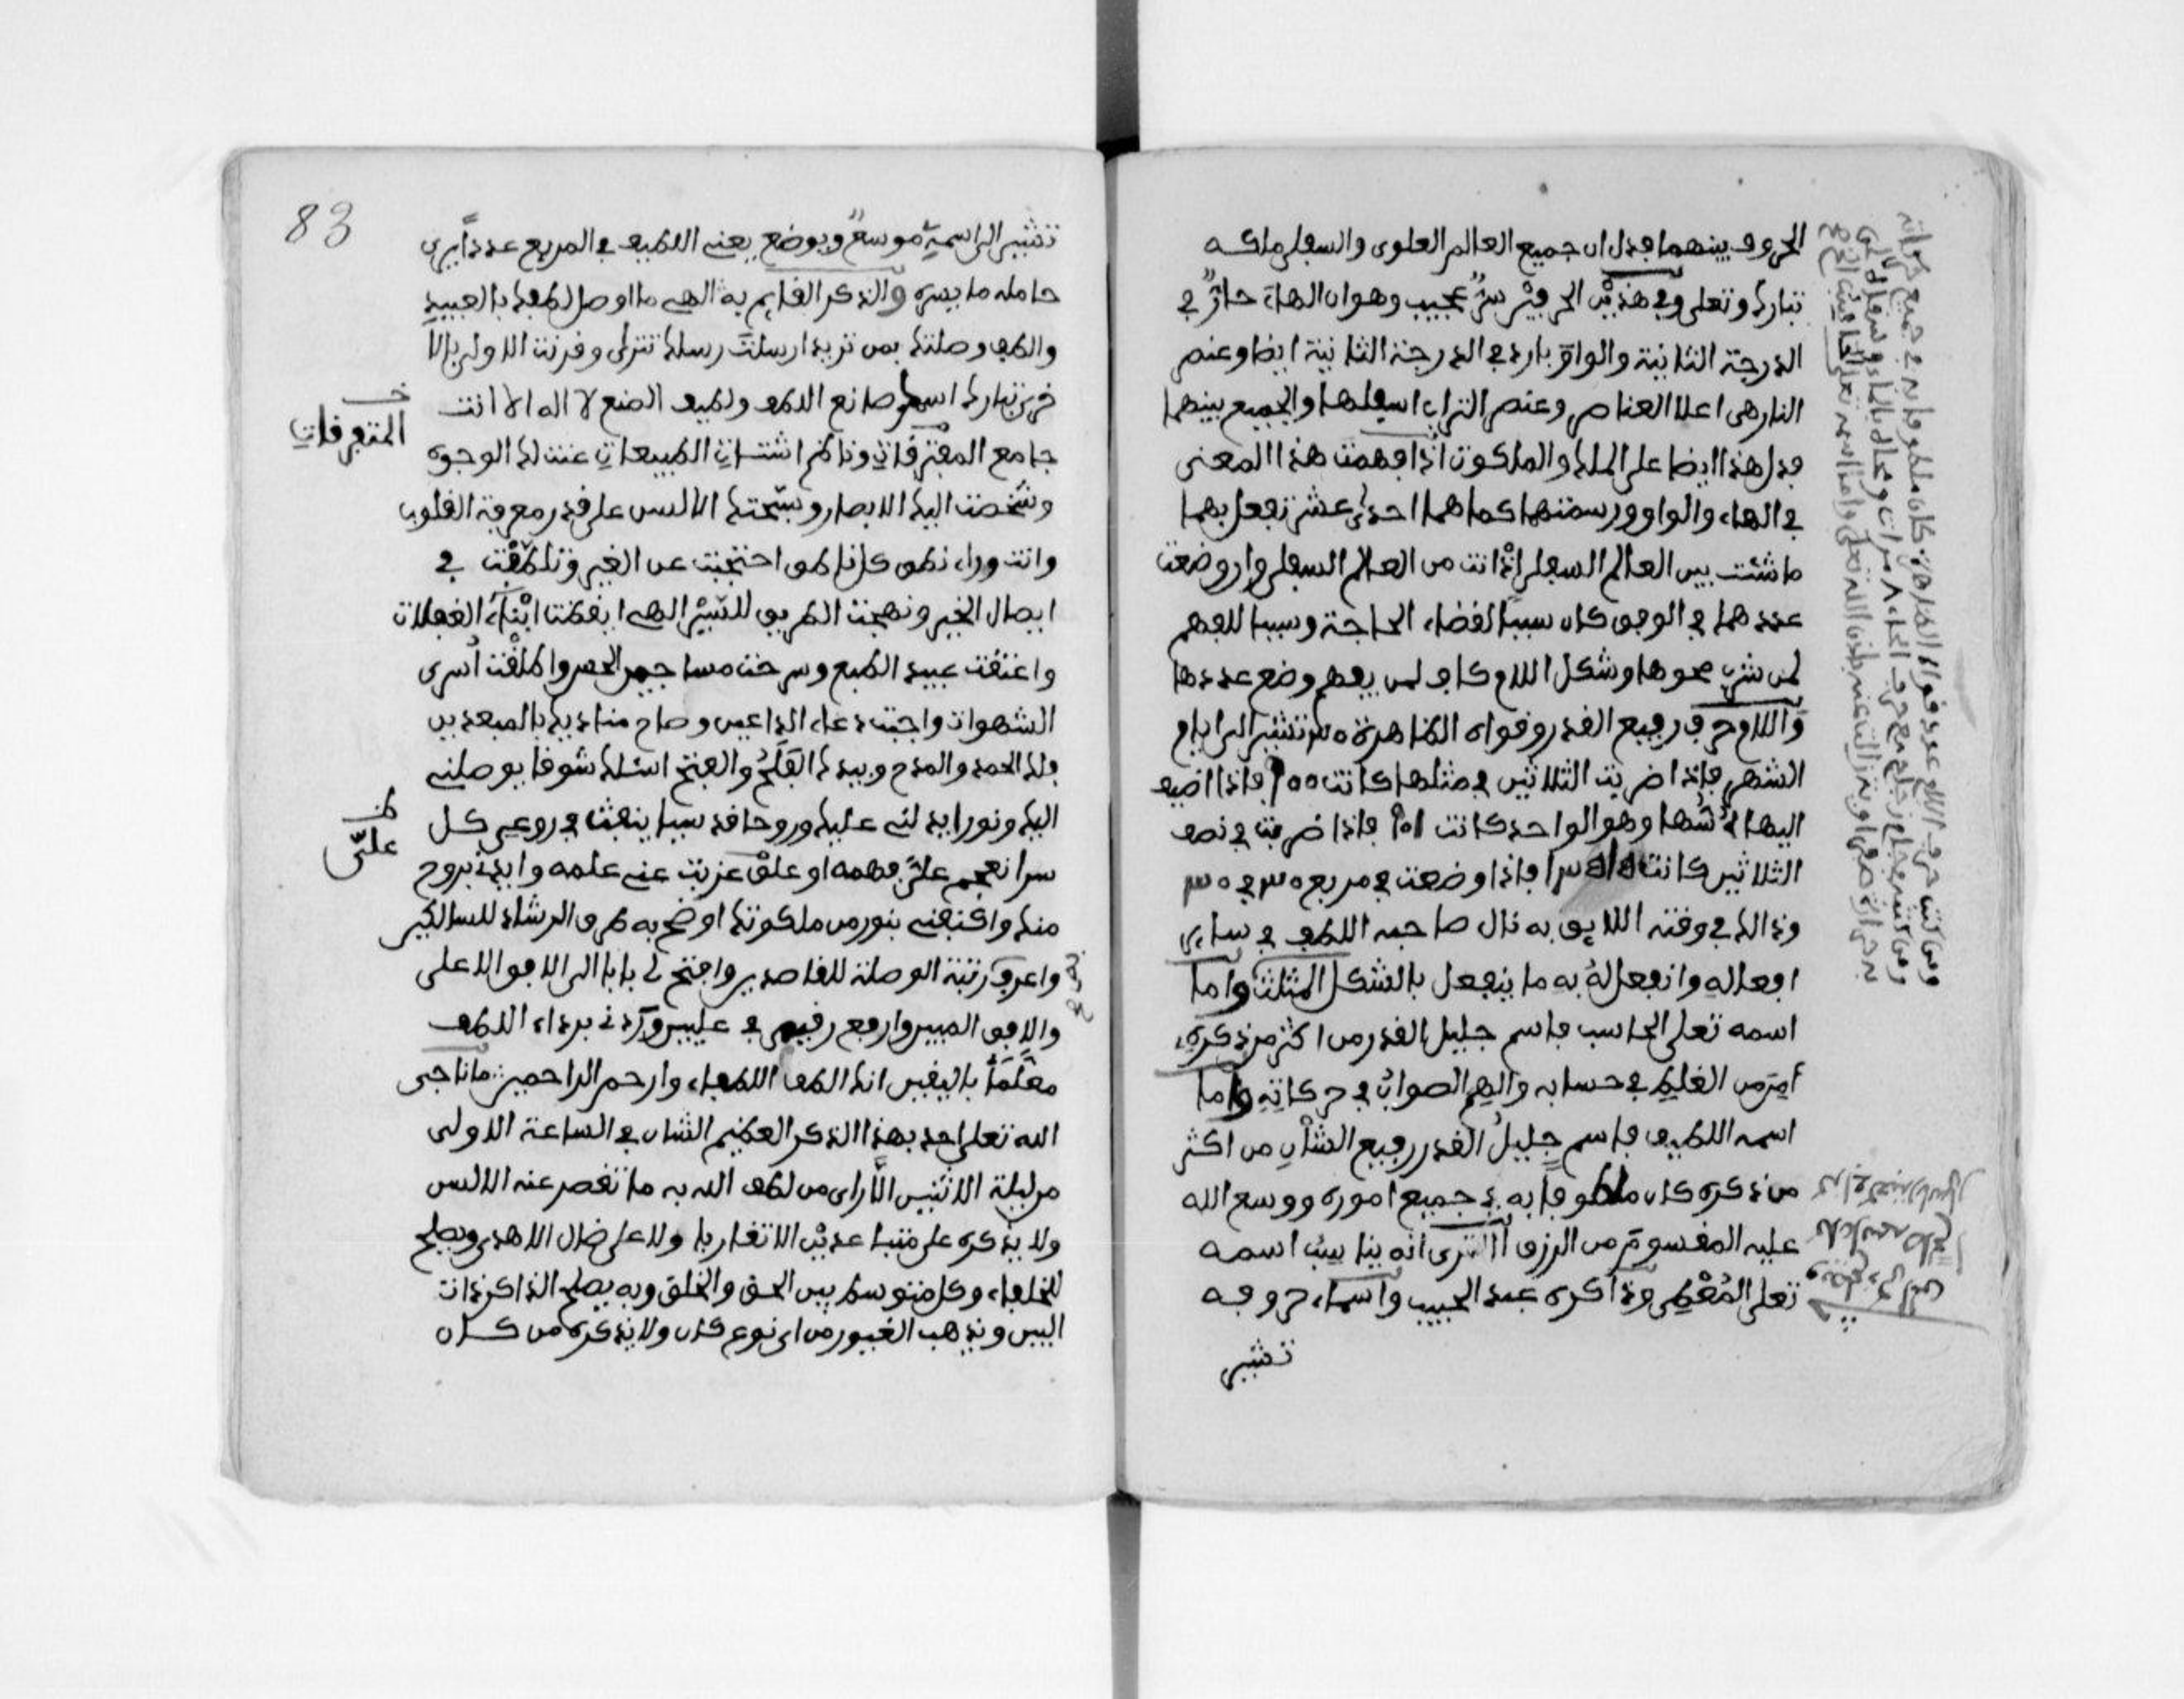 الحروف بينهما فدل ان جميع العالم العلوى والسفلى ملكه
تبارك وتعلى وفى هذين الحرفين سر عجيب وهو ان الهاء حار فى
الدرجة الثانية والواو بارد فى الدرجة الثانية ايضا وعنصر
النار هى اعلا العناصر وعنصر التراب اسفلها والجميع بينهما
فدل هذا ايضا على الملك والملكوت اذا فهمت هذا المعنى
فى الهاء والواو ورسمتهما كما هما احدى عشر تفعل بهما
ما شئت بين العالم السفلى اذ انت من العالم السفلى وان وضعت
عددهما فى الوفق كان سببا لقضاء الحاجة وسببا للفهم
لمن شرب محوها وشكل اللام كاف لمن يفهم وضع عددها
واللام حرف رفيع القدر وقواه الظاهرة ٣٠ تشير الى ايام
الشهر فاذا ضربت الثلاثين فى مثلها كانت ٩٠٠ فاذا اضيف
اليها أسها وهو الواحد كانت ٩٠١ فاذا ضربت فى نصف
الثلاثين كانت فاذا وضعت فى مربع ٣٠ فى ٣٠
وذالك فى وقته اللايق به نال صاحبه اللطف فى ساير
افعاله وانفعل له به ما ينفعل بالشكل المثلث واما
اسمه تعلى الحاسب فاسم جليل القدر من اكثر من ذكره
أمن من الغلط فى حسابه والهم الصواب فى حركاته واما
اسمه اللطيف فاسم جليل القدر رفيع الشأن من اكثر
من ذكره كان ملطوفا به فى جميع اموره ووسع الله
عليه المقسوم من الرزق الا ترى انه يناسب اسمه
تعلى المعطى وذاكره عبد الحبيب واسماء حروفه
تشير
83
تشير الى اسمية موسع وبوضع يعنى اللطيف فى المربع عددا يرى
حامله ما يسره والذكر القايم به الهى ما اوصل لطفك بالعبيد
والطف وصلتك بمن تريد ارسلت رسلك تترى وقرنت الاولى بالا
خرى تباركت اسما صانع اللطف ولطيف الصنع لا اله الا انت
جامع المفترقات وناظم اشتات الطبيعات عنت لك الوجوه
خ المتفرقات
وشخصت اليك الابصار وسبحتك الالسن على قدر معرفة القلوب
وانت وراء نطق كل ناطق احتجبت عن الغير وتلطفت فى
ايصال الخير ونهجت الطريق للسير الهى ايقظت ابناء الغفلات
واعتقت عبيد الطبع وسرحت مساجين الحس واطلقت أسرى
الشهوات واجبت دعاء الداعين وصاح مناديك بالمبعدين
فلك الحمد والمدح وبيدك الفلج والفتح اسئلك شوقا يوصلنى
اليك ونورا يدلنى عليك وروحا قدسيا ينفث فى روعى كل
سر انعجم على فهمه او علق عزبت عنى علمه وايدنى بروح
ظ علىّ
منك واكنفنى بنور من ملكوتك اوضح به طرق الرشاد للسالكين
واعرف رتبة الوصلة للقاصدين وافتح لى بابا الى الافق الاعلى
والافق المبين وارفع رقيمى فى عليين وردنى برداء اللطف
معلما باليقين انك الطف اللطفاء وارحم الراحمين ما ناجى
الله تعلى احد بهذا الذكر العظيم الشان فى الساعة الاولى
من ليلة الاثنين الا راى من لطف الله به ما تقصر عنه الالسن
ولا يذكره على متباعدين الا تقاربا ولا على ضال الا هدى ويصلح
للخلفاء وكل متوسط بين الحق والخلق وبه يصلح الذاكر ذات
البين ويذهب الغيور من اى نوع كان ولا يذكره من كان